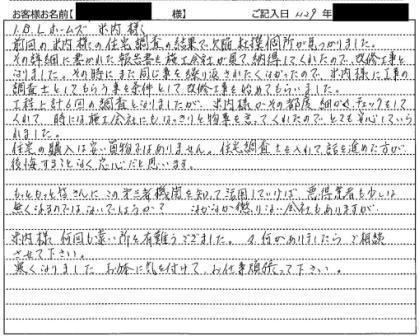 お客様お名前【 様】 ご記入日 11/29 年
I.B.Lホームズ 米内 様
前回の米内様の住宅調査の結果で欠陥社模個所が見つかりました。
その詳細に書かれた報告書を施工会社が見て、納得してくれたので、改修工事と
なりました。その時にまた同じ事を繰り返されたくなかったので、米内様に工事の
調査士としてもらう事を条件として改修工事を始めてもらいました。
工程上計6回の調査となりましたが、米内様がその都度、細かくチェックをして
くれて、時には施工会社にもはっきりと物事を言ってくれたのでとても安心していら
れました。
住宅の購入は安い買物ではありません。住宅調査士を入れて話を進めた方が、
後悔することなく安心だと思います。
もっともっと皆さんにこの第三者機関を知って活用していけば、悪徳業者も少しは
無くなるのではないでしょうか? なかなか懲りない会社もありますが
米内様、何回も遠い所を有難うございました。又何かありましたらご相談
させて下さい。
寒くなりました お体に気を付けて、お仕事頑張って下さい。